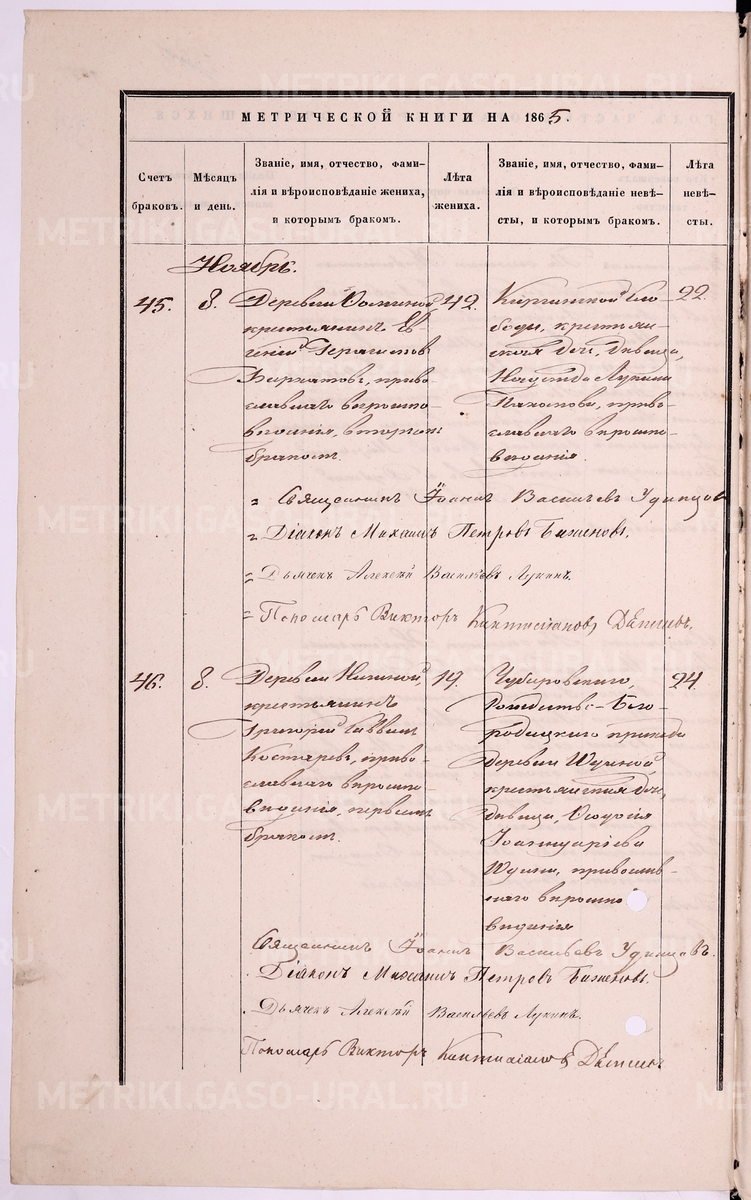 МЕТРИЧЕСКОЙ КНИГИ НА 1865.
Счетъ браковъ.
Мѣсяцъ и день.
Званіе, имя, отчество, фами-
лія и вѣроисповѣданіе жениха,
и которымъ бракомъ.
Лѣта жениха.
Званіе, имя, отчество, фами-
лія и вѣроисповѣданіе невѣ-
сты, и которымъ бракомъ.
Лѣта невѣ-
сты.
Ноябрь.
45.
8.
Деревни
крестьянинъ Ев-
геній
право-
славнаго вѣроиспо-
вѣданія, вторымъ
бракомъ.
42.
Киргинской Сло-
боды, крестьян-
ская дочь, дѣвица,
Лукина
Пахомова, право-
славнаго вѣроиспо-
вѣданія.
22.
= Священникъ Іоаннъ Васильевъ Удинцовъ
= Діаконъ Михаилъ Петровъ Баженовъ.
= Дьячекъ Алексѣй Васильевъ Лукинъ.
= Пономарь Викторъ
46.
8.
Деревни
крестьянинъ
Григорій Саввинъ
Костаревъ, право-
славнаго вѣроиспо-
вѣданія, первымъ
бракомъ.
19.
Чубаровскаго,
Рождество-Бого-
родицкаго прихода
деревни Шуиной
крестьянская дочь,
дѣвица, Ѳеодосія
Іоаннуаріева
Шуина, православ-
наго вѣроиспо-
вѣданія
24.
Священникъ Іоаннъ Васильевъ Удинцовъ.
Діаконъ Михаилъ Петровъ Баженовъ.
Дьячекъ Алексѣй Васильевъ Лукинъ.
Пономарь Викторъ
METRIKI.GASO-URAL.RU